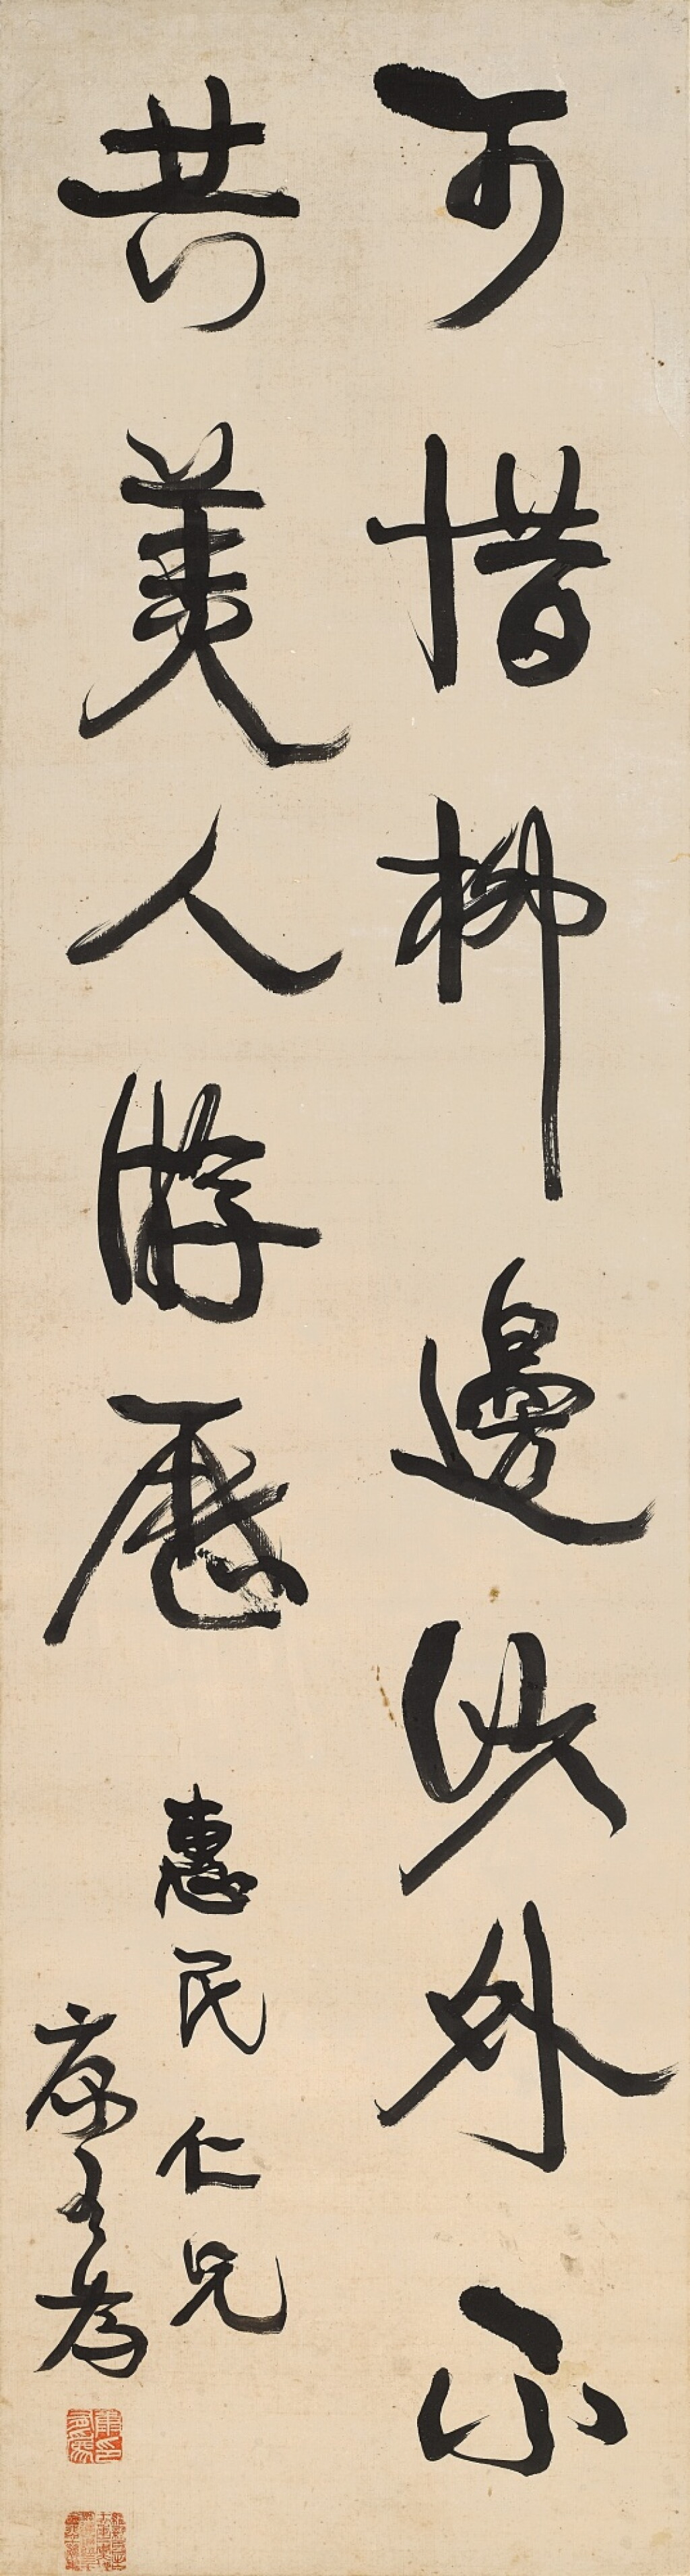 可惜柳邊池外不
共美人游歷
惠民仁兄
康有為